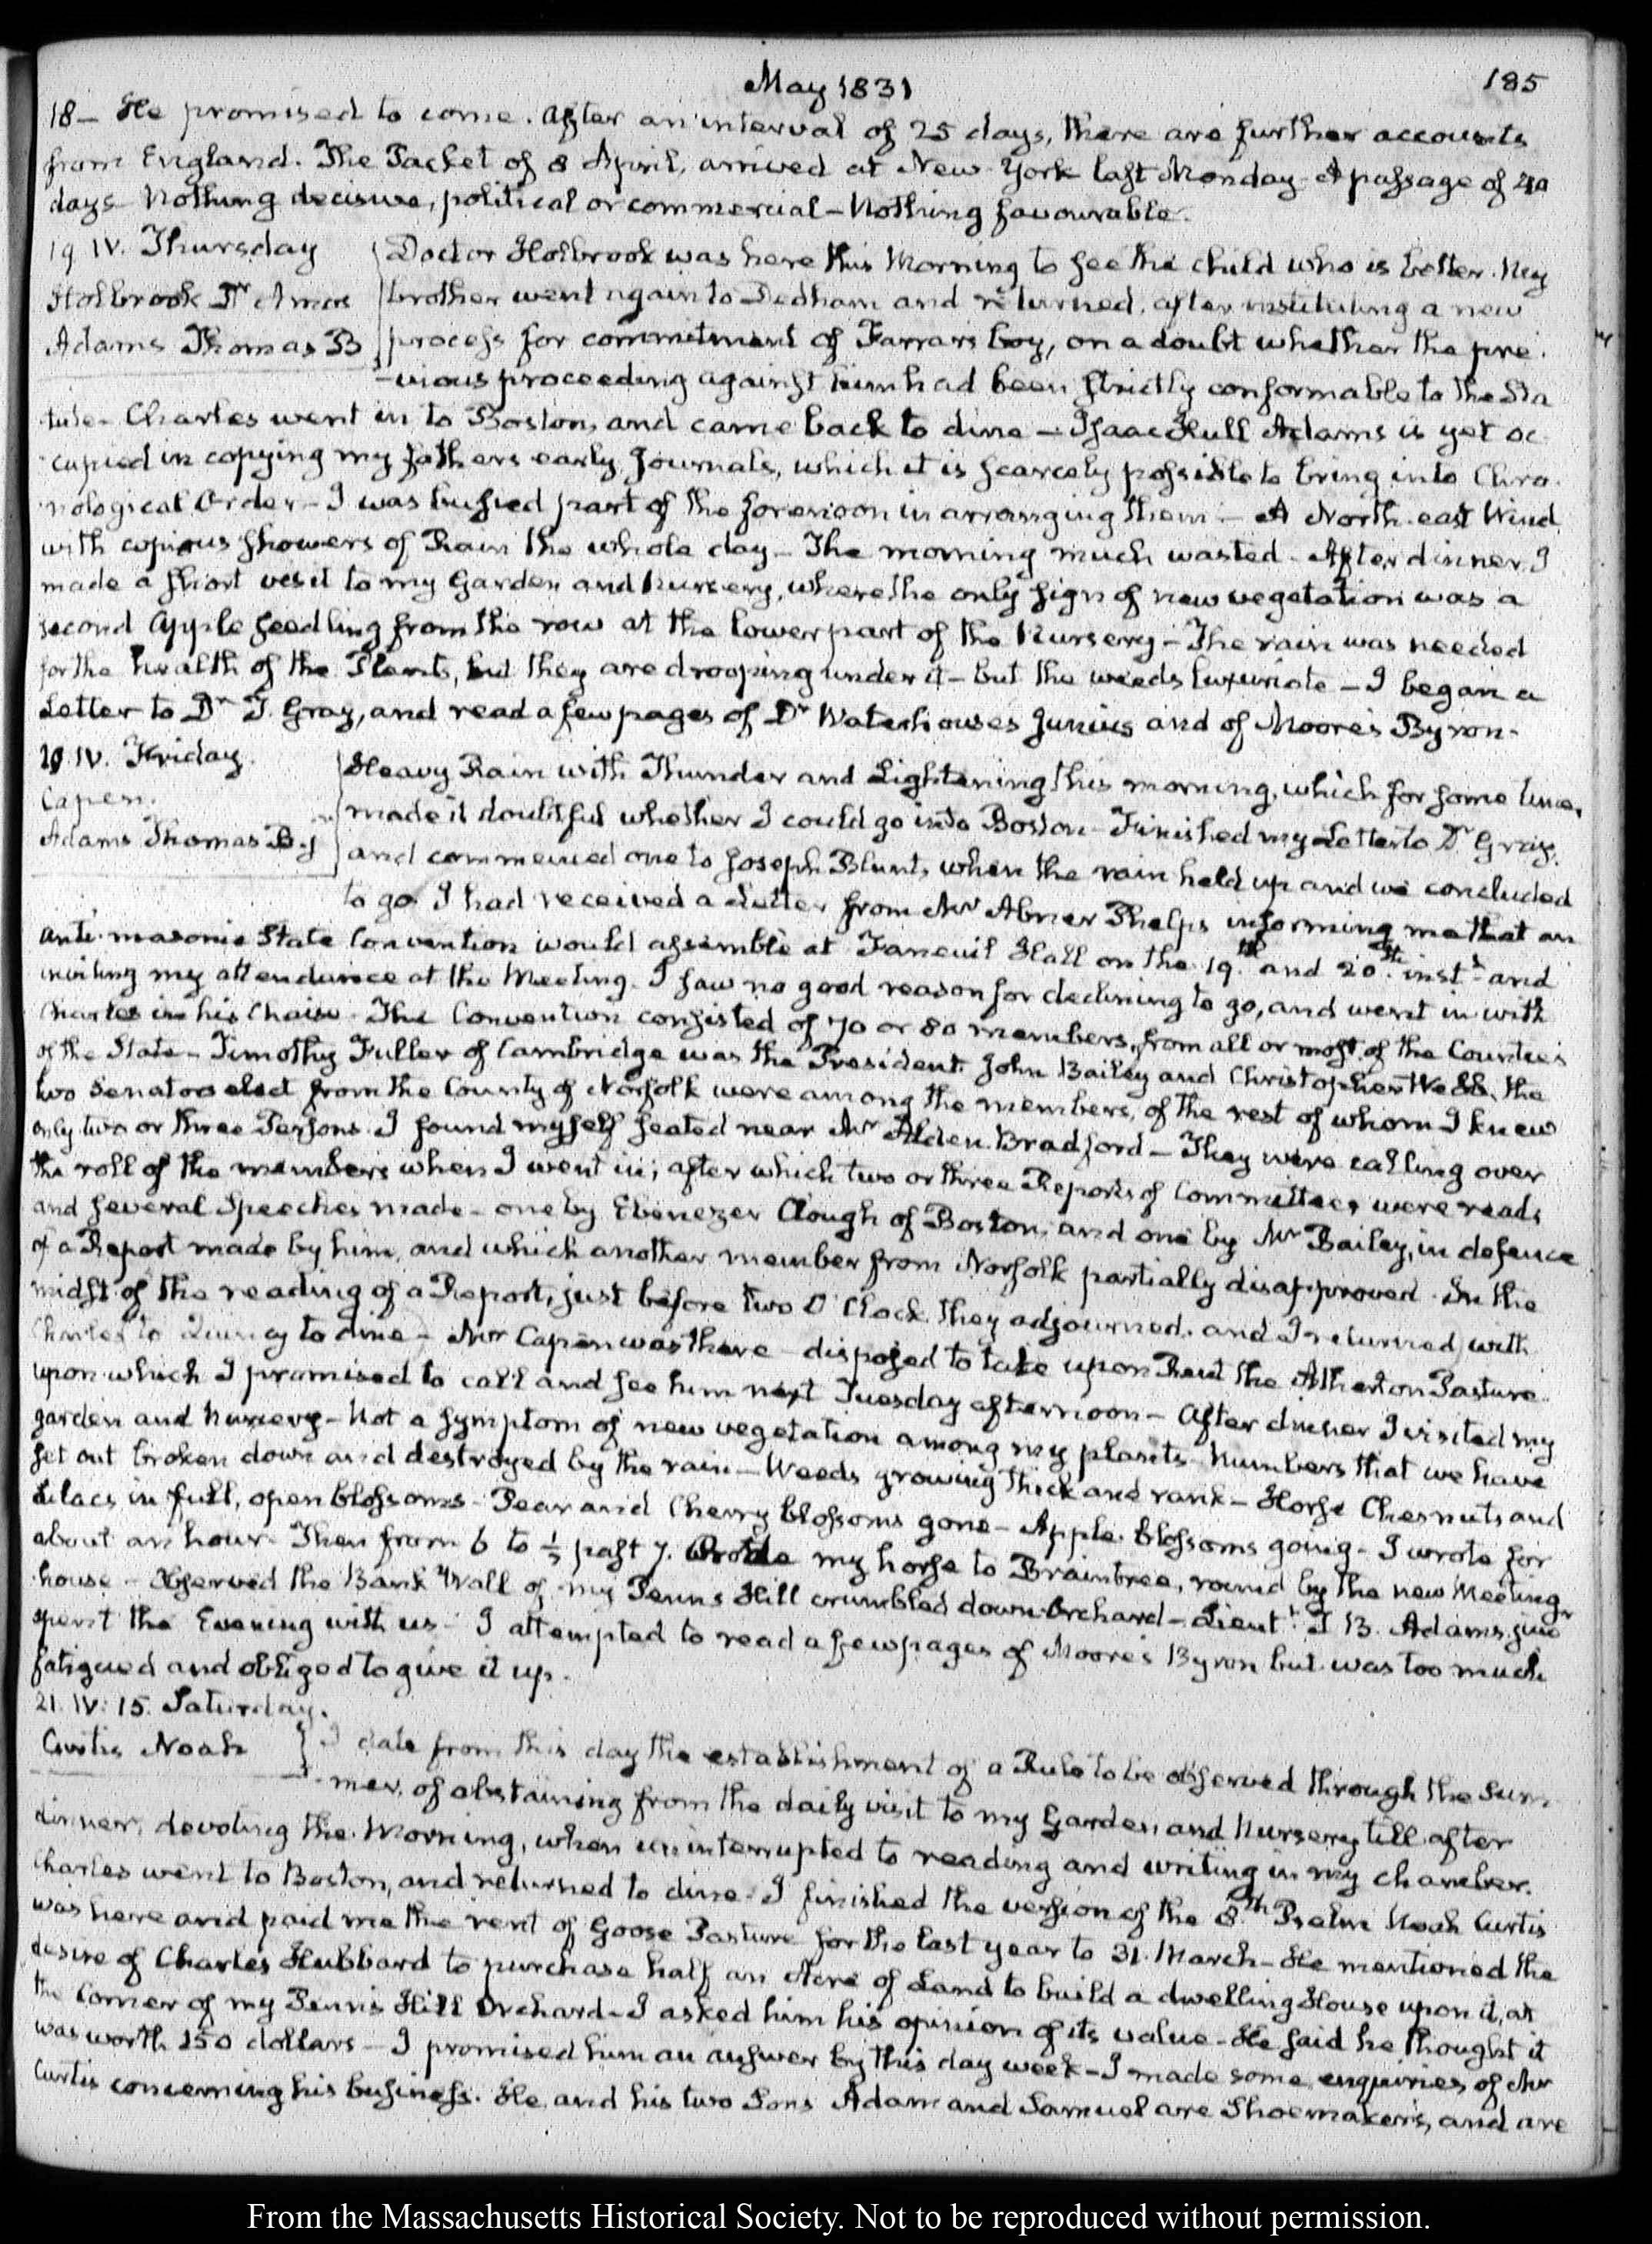 May 1831
185
18 – He promised to come. After an interval of 25 days, there are further accounts
from England. The Packet of 8 April, arrived at New-York last Monday – A passage of 40
days – Nothing decisive, political or commercial – Nothing favourable.
19 IV. Thursday
Holbrook Dr Amos
Adams Thomas B
Doctor Holbrook was here this Morning to see the child who is better. My
brother went again to Dedham and returned, after instituting a new
process for commitment of Farrar's boy, on a doubt whether the pre-
-vious proceeding against him had been strictly conformable to the Sta-
-tute – Charles went in to Boston, and came back to dine – Isaac Hull Adams is yet oc-
-cupied in copying my fathers early Journals, which it is scarcely possible to bring into Chro-
-nological Order – I was busied part of the forenoon in arranging them – A North-east Wind,
with copious showers of Rain the whole day – The morning much wasted – After dinner, I
made a short visit to my Garden and Nursery, where the only sign of new vegetation was a
second Apple seedling from the row at the lower part of the Nursery – The rain was needed
for the health of the Plants, but they are drooping under it – but the weeds luxuriate – I began a
Letter to Dr F. Gray, and read a few pages of Dr Waterhouse's Junius and of Moore's Byron –
20. IV. Friday.
Capen.
Adams Thomas B. j
Heavy Rain with Thunder and Lightening this morning, which for some time,
made it doubtful whether I could go into Boston – Finished my Letter to Dr Gray,
and commenced one to Joseph Blunt, when the rain held up and we concluded
to go. I had received a Letter from Mr Abner Phelps informing me that an
anti-masonic State Convention would assemble at Faneuil Hall on the 19th and 20th inst. and
inviting my attendance at the Meeting. I saw no good reason for declining to go, and went in with
Charles in his Chaise – The Convention consisted of 70 or 80 members, from all or most of the Counties
of the State – Timothy Fuller of Cambridge was the President. John Bailey and Christopher Webb, the
two Senators elect from the County of Norfolk were among the members, of the rest of whom I knew
only two or three Persons. I found myself seated near Mr Alden Bradford – They were calling over
the roll of the members when I went in; after which two or three Reports of Committees were read,
and several Speeches made – one by Ebenezer Clough of Boston, and one by Mr Bailey, in defence
of a Report made by him, and which another member from Norfolk partially disapproved. In the
midst of the reading of a Report, just before two O'Clock they adjourned, and I returned with
Charles to Quincy to dine – Mr Capen was there – disposed to take upon Rent the Atherton Pasture
upon which I promised to call and see him next Tuesday afternoon – After dinner I visited my
garden and Nursery – Not a symptom of new vegetation among my plants – Numbers that we have
set out broken down and destroyed by the rain – Weeds growing thick and rank – Horse Chesnuts and
Lilacs in full, open blossoms – Pear and Cherry blossoms gone – Apple blossoms going – I wrote for
about an hour – Then from 6 to ½ past 7. Rode my horse to Braintree, round by the new Meeting-
-house – Observed the Bank Wall of my Penns Hill crumbled down Orchard – Lieut. T. B. Adams junr
spent the Evening with us – I attempted to read a few pages of Moore's Byron but was too much
fatigued and obliged to give it up.
21. IV: 15. Saturday.
Curtis Noah
I date from this day the establishment of a Rule to be observed through the Sum-
-mer, of abstaining from the daily visit to my Garden and Nursery till after
dinner, devoting the Morning, when uninterrupted to reading and writing in my chamber.
Charles went to Boston, and returned to dine. I finished the version of the 8th Psalm. Noah Curtis
was here and paid me the rent of Goose Pasture for the last year to 31. March – He mentioned the
desire of Charles Hubbard to purchase half an Acre of Land to build a dwelling House upon it, at
the Corner of my Penn's Hill Orchard – I asked him his opinion of its value – He said he thought it
was worth 150 dollars – I promised him an answer by this day week – I made some enquiries of Mr
Curtis concerning his business. He, and his two Sons Adam and Samuel are Shoemakers, and are
From the Massachusetts Historical Society. Not to be reproduced without permission.